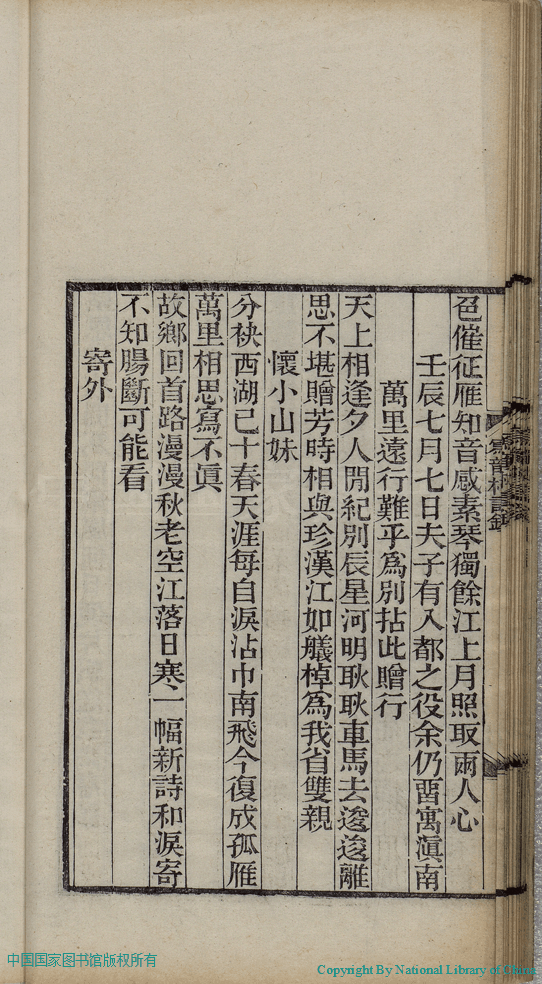 邑催征雁知音感素琴獨餘江上月照取兩人心
壬辰七月七日夫子有入都之役余仍畱寓滇南
萬里遠行難乎爲別拈此贈行
天上相逢夕人閒紀別辰星河明耿耿車馬去逡逡離
思不堪贈芳時相與珍漢江如艤棹爲我省雙親
懷小山妹
分袂西湖已十春天涯每自淚沾巾南飛今復成孤雁
萬里相思寫不眞
故鄉回首路漫漫秋老空江落日寒一幅新詩和淚寄
不知腸斷可能看
寄外
中国国家图书馆版权所有
Copyright By National Library of China